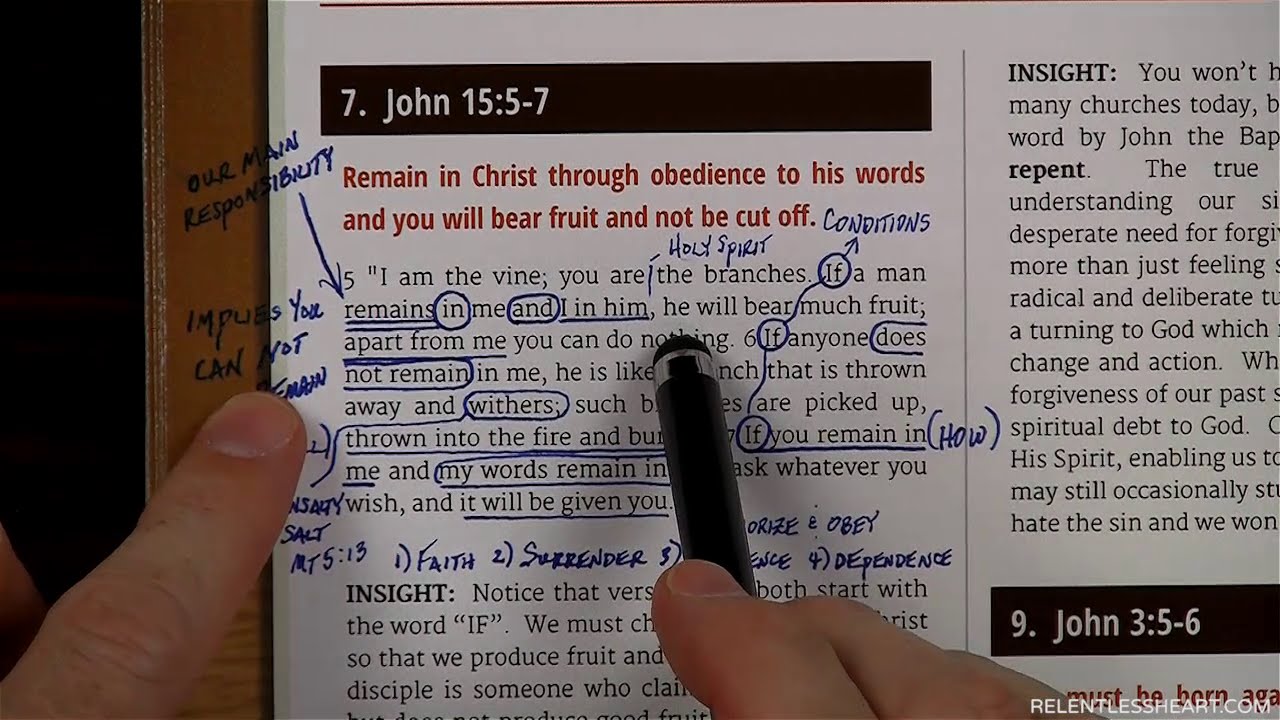 7. John 15:5-7
OUR MAIN
RESPONSIBILITY
Remain in Christ through obedience to his words
and you will bear fruit and not be cut off. CONDITIONS
HOLY SPIRIT
5 "I am the vine; you are the branches. If a man
remains in me and I in him, he will bear much fruit;
IMPLIES YOU
apart from me you can do nothing. 6 If anyone does
CAN NOT
not remain in me, he is like that is thrown
REMAIN
away and withers; such are picked up,
thrown into the fire and If you remain in (HOW)
me and my words remain in ask whatever you
wish, and it will be given you.
SALT
MT 5:13
& OBEY
1) FAITH 2) SURRENDER 3) 4) DEPENDENCE
INSIGHT: Notice that both start with
the word “IF”. We must
so that we produce fruit and
disciple is someone who
but does not produce good fruit
INSIGHT: You won’t
many churches today,
word by John the
repent. The true
understanding our
desperate need for
more than just feeling
radical and deliberate
a turning to God which
change and action.
forgiveness of our past
spiritual debt to God.
His Spirit, enabling us
may still occasionally
hate the sin and we
9. John 3:5-6
must be born
RELENTLESSHEART.COM